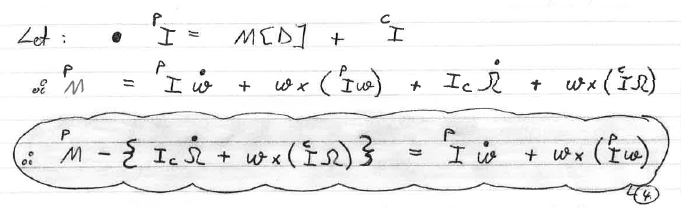 Let : • ᴾI = M[D] + ᶜI
∴ ᴾM = ᴾI ω̇ + ω x (ᴾIω) + I꜀ Ω̇ + ω x (ᶜIΩ)
∴ ᴾM - { I꜀ Ω̇ + ω x (ᶜIΩ) } = ᴾI ω̇ + ω x (ᴾIω)
4